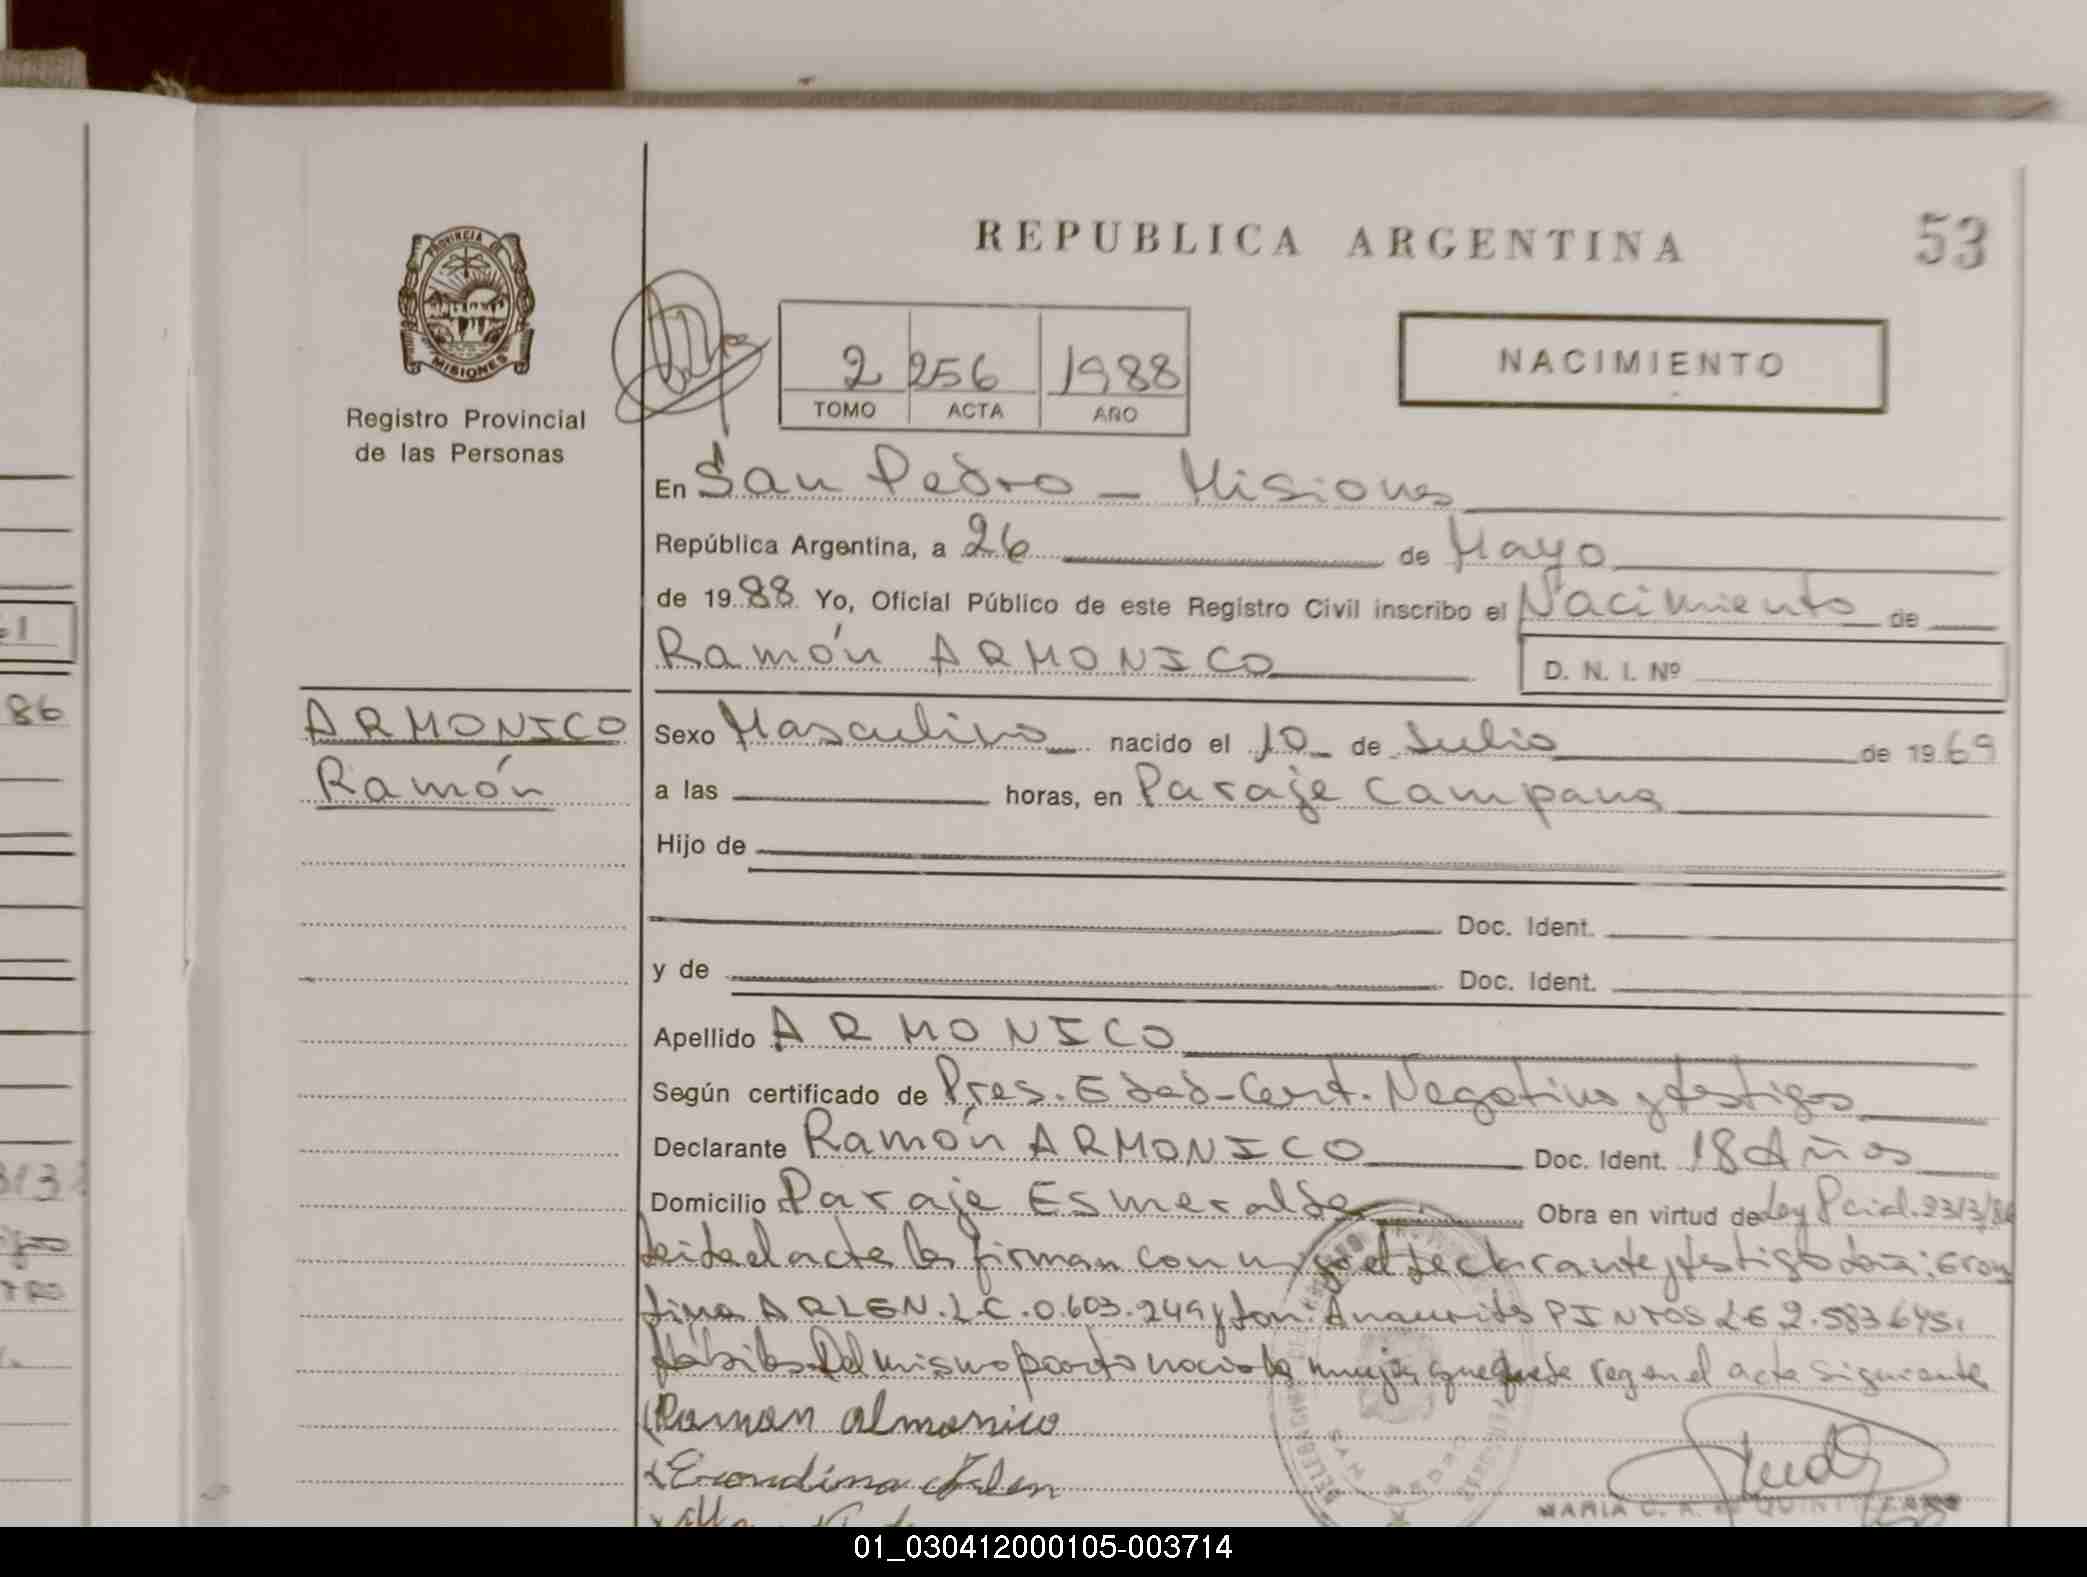 REPUBLICA ARGENTINA
53
PROVINCIA DE
MISIONES
Registro Provincial
de las Personas
2 256 1988
TOMO ACTA AÑO
NACIMIENTO
En San Pedro - Misiones
República Argentina, a 26 de Mayo
de 1988 Yo, Oficial Público de este Registro Civil inscribo el Nacimiento de
Ramón ARMONICO
D. N. I. Nº
ARMONICO
Ramón
Sexo Masculino nacido el 10 de Julio de 1969
a las horas, en Paraje Campana
Hijo de
Doc. Ident.
y de Doc. Ident.
Apellido ARMONICO
Según certificado de Pres. Edad-Cert. Negativo y testigos
Declarante Ramón ARMONICO Doc. Ident. 18 Años
Domicilio Paraje Esmeralda Obra en virtud de Ley Pcial. 2313/86
Leida el acta la firman conmigo el declarante y testigo doña: Eron
dina ARLEN. L.C. 0.603.249 y don. PINTOS LE 2.583.645.
Hábiles. Del mismo parto nacio la mujer que queda reg en el acta siguiente
Ramon almonico
Erondina Arlen
MARIA C. R. de
86
01_030412000105-003714